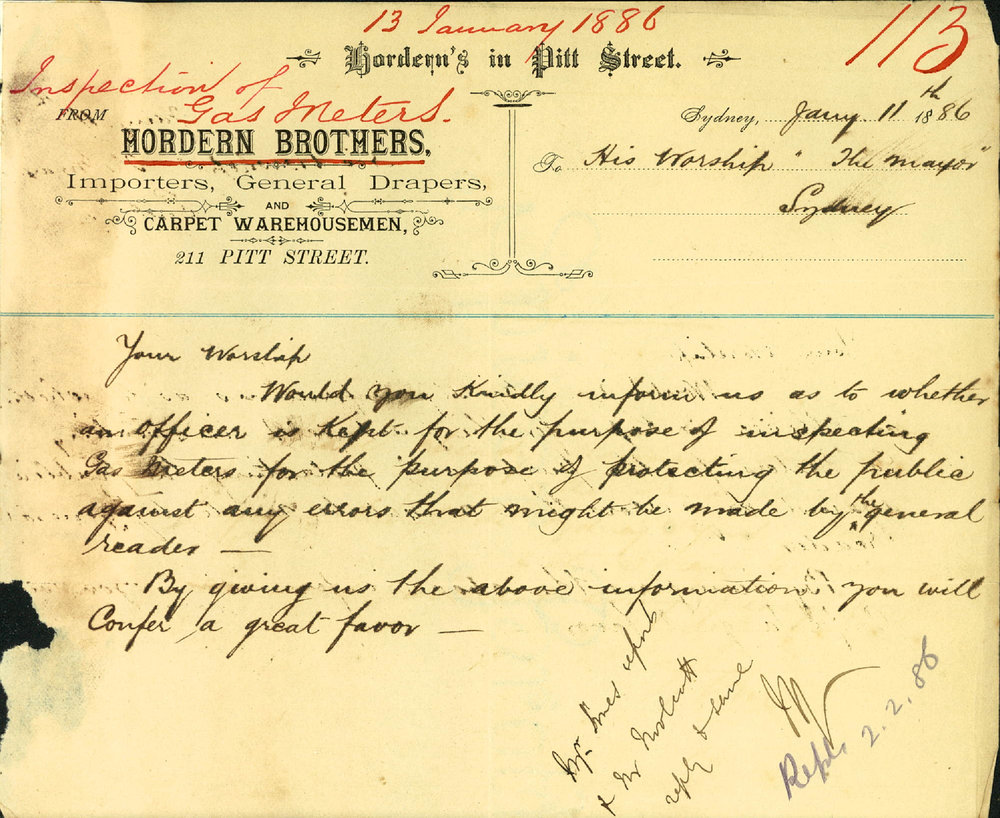 13 January 1886
113
Hordern's in Pitt Street.
Inspection of
Gas Meters.
FROM
HORDERN BROTHERS,
Importers, General Drapers,
AND
CARPET WAREHOUSEMEN,
211 PITT STREET.
Sydney, Jany 11th 1886
To His Worship "The Mayor"
Sydney
Your Worship
Would you Kindly inform us as to whether
an officer is Kept for the purpose of inspecting
Gas Meters for the purpose of protecting the public
against any errors that might be made by the general
reader —
By giving us the above information you will
Confer a great favor —
Mr. report
& Mr
reply & same
2.2.86